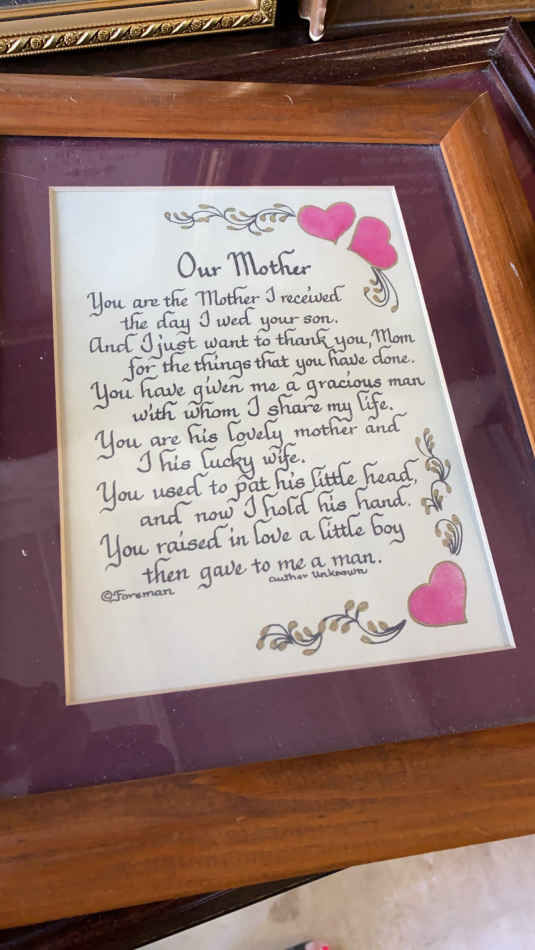 Our Mother
You are the Mother I received
the day I wed your son.
And I just want to thank you, Mom
for the things that you have done.
You have given me a gracious man
with whom I share my life.
You are his lovely mother and
I his lucky wife.
You used to pat his little head,
and now I hold his hand.
You raised in love a little boy
then gave to me a man.
author unknown
©Foreman